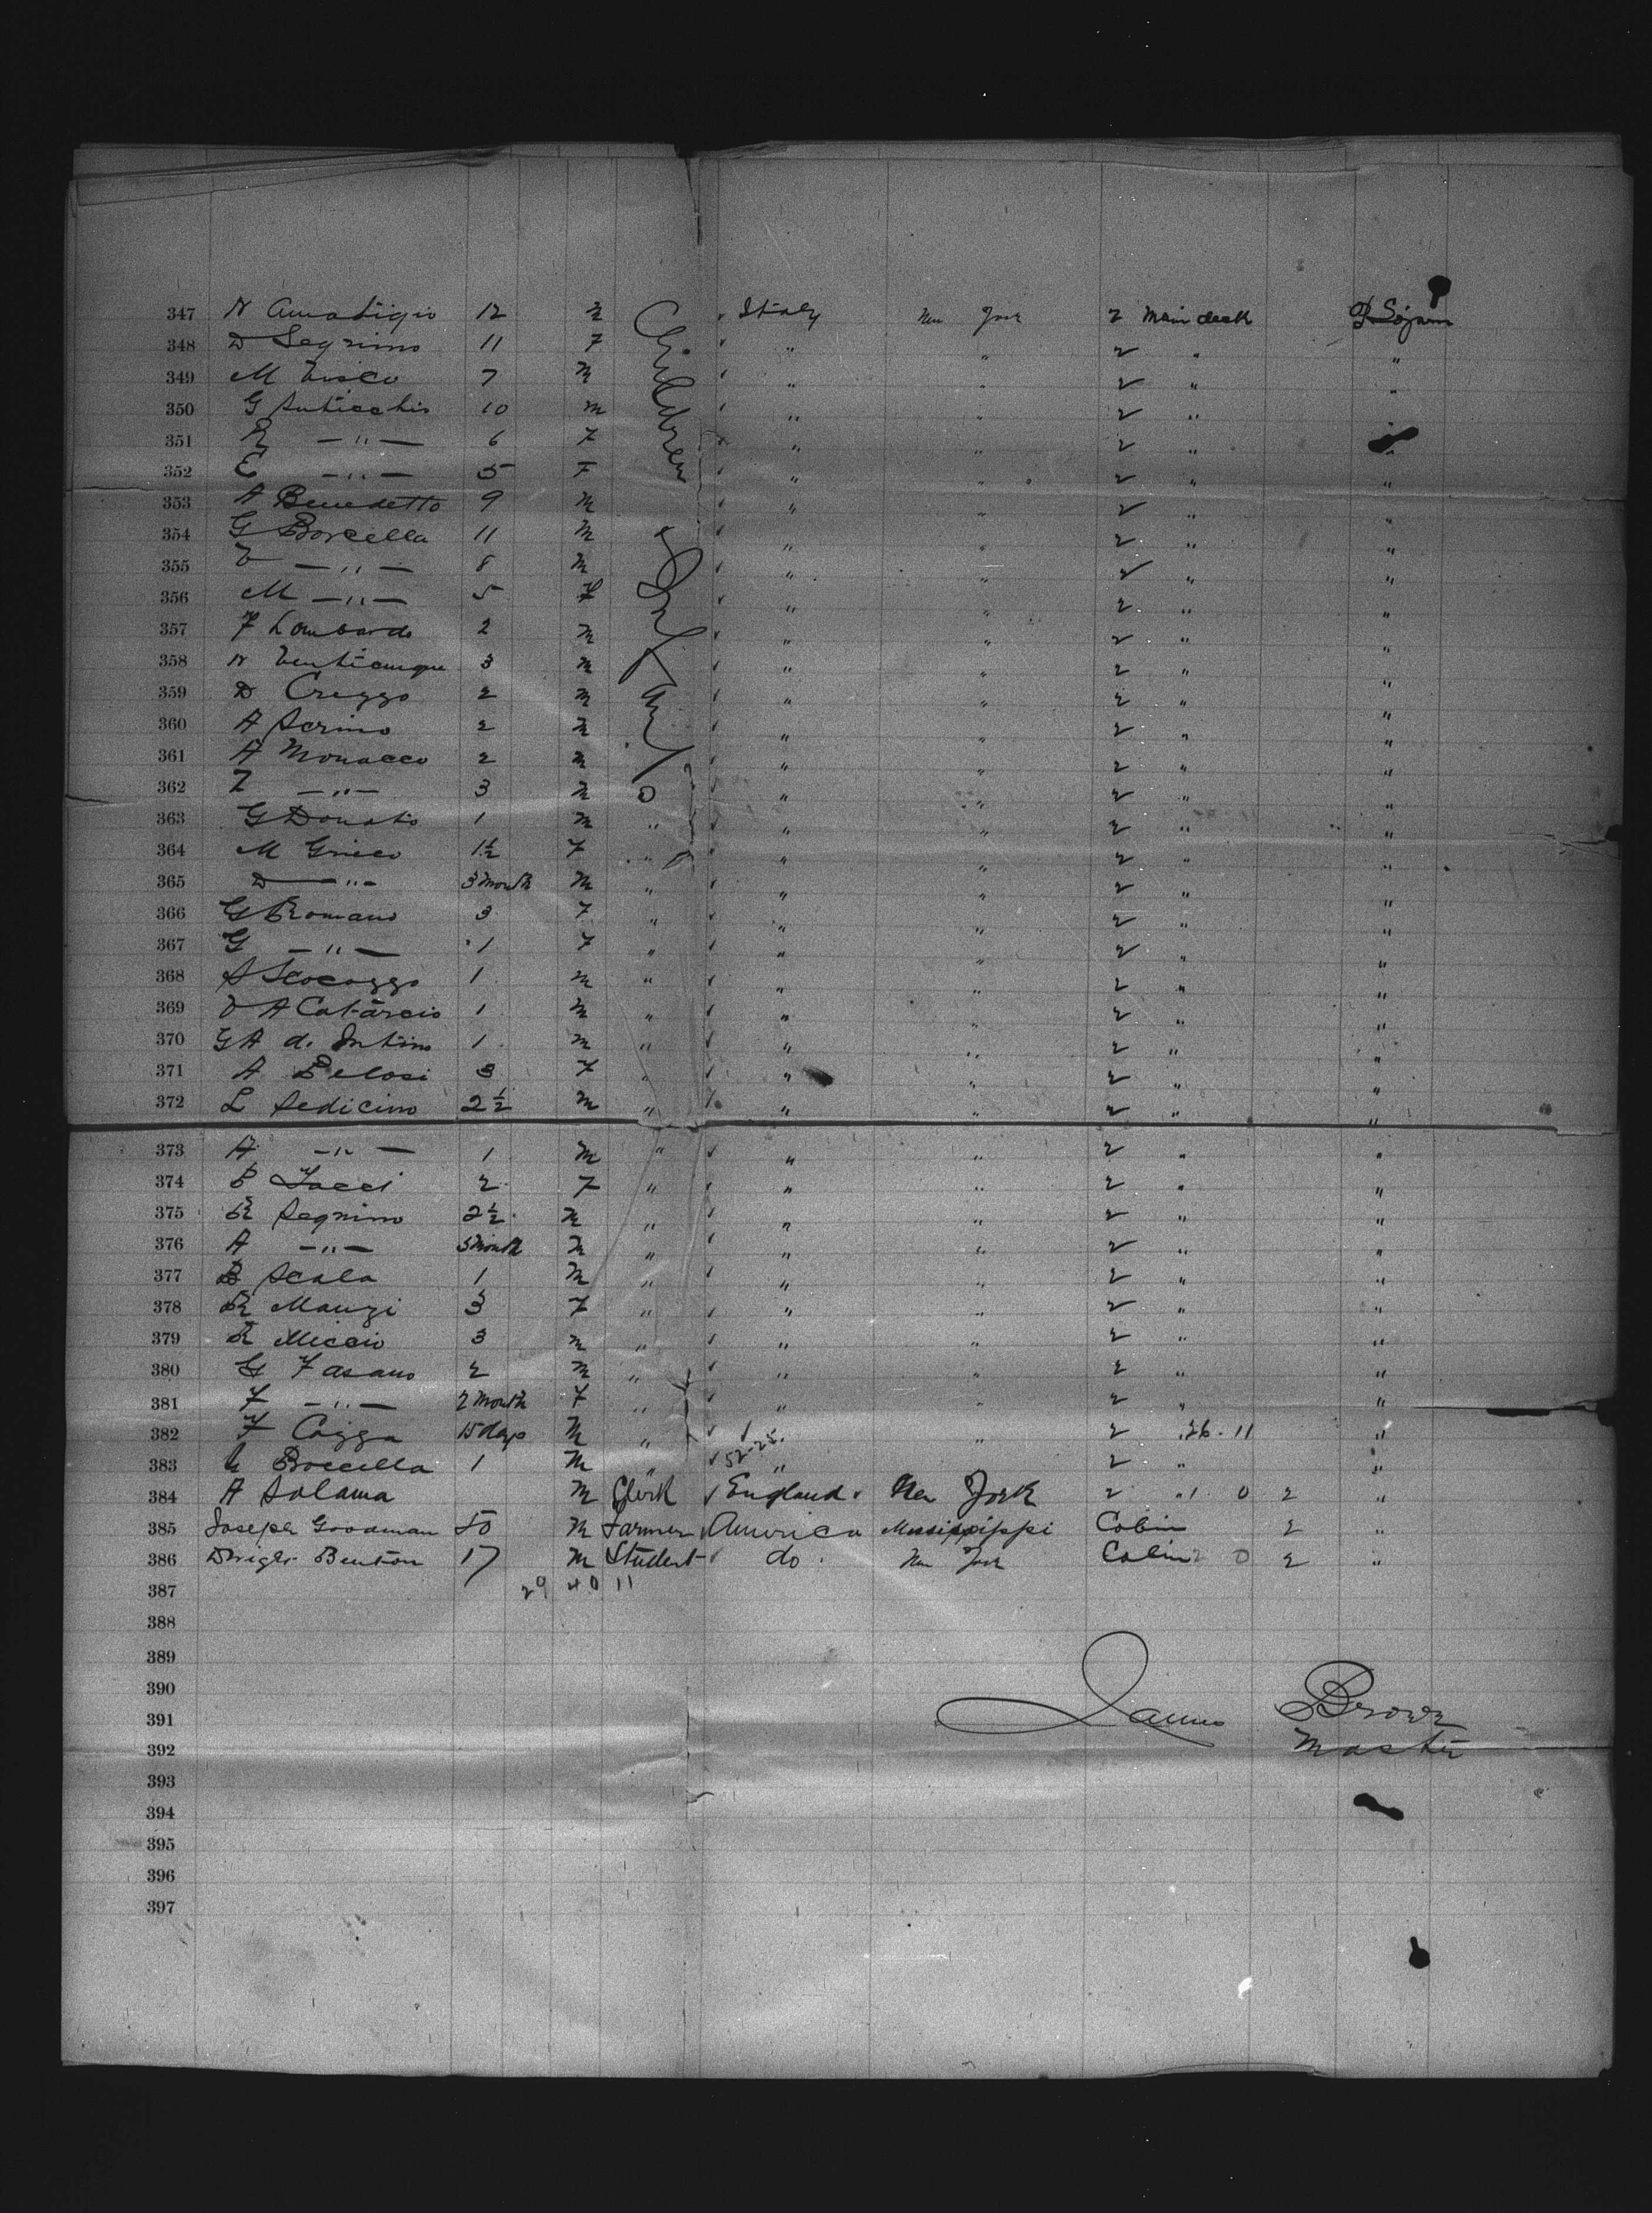 347 N Amodigio 12 M Children Italy New York 2 Main deck
348 D Segnino 11 F " " 2 " "
349 M Tusco 7 M " " 2 " "
350 G Anticchio 10 m " " 2 "
351 R —"— 6 F " " 2 "
352 E —"— 5 F " " 2 " "
353 A Benedetto 9 M " " 2 " "
354 G Borcella 11 M & " " 2 " "
355 V —"— 8 M " " 2 " "
356 M —"— 5 F " " 2 " "
357 F Lombardo 2 M " " 2 " "
358 N Venticinque 3 M " " 2 " "
359 D Creggo 2 M " " 2 " "
360 A Serino 2 M " " 2 " "
361 A Monacco 2 M " " 2 " "
362 Z —"— 3 M " " 2 " "
363 G Donato 1 M " " " 2 " "
364 M Grieco 1½ F " " " 2 " "
365 D —"— 3 Month M " " " 2 " "
366 G Romano 3 F " " " 2 " "
367 G —"— 1 F " " " 2 " "
368 A Scocozzo 1 M " " " 2 " "
369 V A Catarcio 1 M " " " 2 " "
370 G A di Intino 1 M " " " 2 " "
371 A Pelosi 3 F " " " 2 " "
372 L Sedicino 2½ M " " " 2 " "
373 A —"— 1 M " " " 2 " "
374 P Iacci 2 F " " " 2 " "
375 R Segnino 2½ M " " " 2 " "
376 A —"— 3 Month M " " " 2 " "
377 B Scala 1 M " " " 2 " "
378 R Manzi 3 F " " " 2 " "
379 R Miccio 3 M " " " 2 " "
380 G Fasano 2 M " " " 2 " "
381 F —"— 2 Month F " " " 2 " "
382 F Cozza 15 days M " " 2 26-11 "
383 Borcella 1 M " 52-25 " 2 " "
384 A Salama M Clerk England New York 2 " 1 0 2 "
385 Joseph Goodman 50 M Farmer America Mississippi Cabin 2 "
386 Dwight Benton 17 M Student do New York Cabin 2 0 2 "
387 29 40 11
388
389
390
391 James Brown
392 Master
393
394
395
396
397